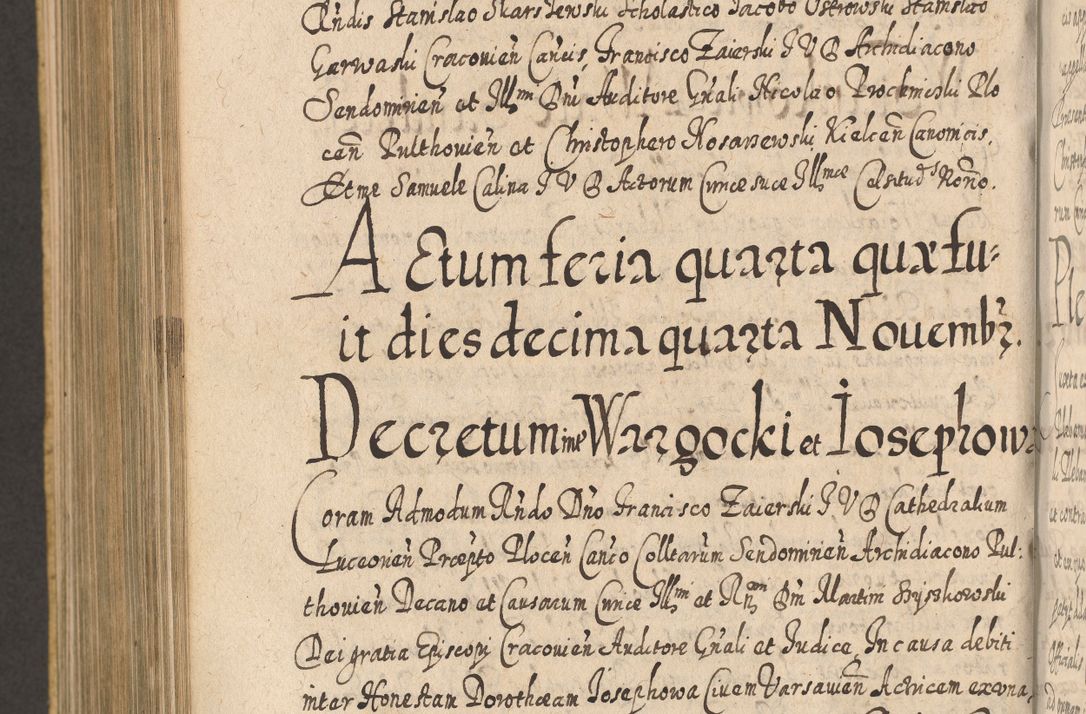 Rndis Stanislao Skarszewski Scholastico Jacobo Ostrowski Stanislao
Garwaski Cracovień Cancis, Francisco Zaierski I V D Archidiacono
Sendomirień et Illmi Dni Auditore Gnali Nicolao Prochnicki Plo
ceñ Pulthovień et Christophero Kosarzewski Kielceñ Canonicis.
Et me Samuele Calina I V D Actorum Curiae suae Illmae Celsitudis Nórió.
Actum feria quarta quae fu-
it dies decima quarta Novembr.
Decretum inter Wargocki et Iosephowa
Coram Admodum Rndo Dno Francisco Zaierski I V D Cathedralium
Luceorień Praepto Ploceń Canco Colltarum Sendomirień Archidiacono Pul:
thovień Decano et Causarum Curiae Illmi et Rnmi Dni Martini Szyszkowski
Dei gratia Episcopi Cracovień Auditore Gnali et Iudice, In causa debiti
inter Honestam Dorotheam Iosephowa Civem Varsavień Actricem ex una